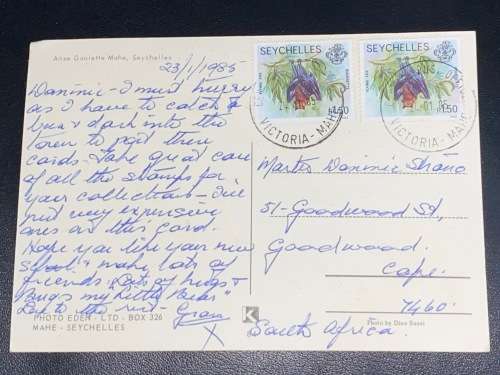 Anse Gaulette Mahe, Seychelles
23/1/1985
Dominic - I must hurry
as I have to catch a
bus & dash into the
town to post these
cards. Take great care
of all the stamps for
your collection - I've
put very expensive
ones on this card.
Hope you like your new
School & make lots of
friends. Lots of hugs &
my Little
Luv to the rest - Gran
X
PHOTO EDEN - LTD - BOX 326
MAHE - SEYCHELLES
SEYCHELLES
R1.50
SEYCHELLES
R1.50
VICTORIA - MAHE
VICTORIA - MAHE
Master Dominic
51 - Goodwood St,
Goodwood.
Cape.
7460.
South Africa.
K
Photo by Dino Sassi